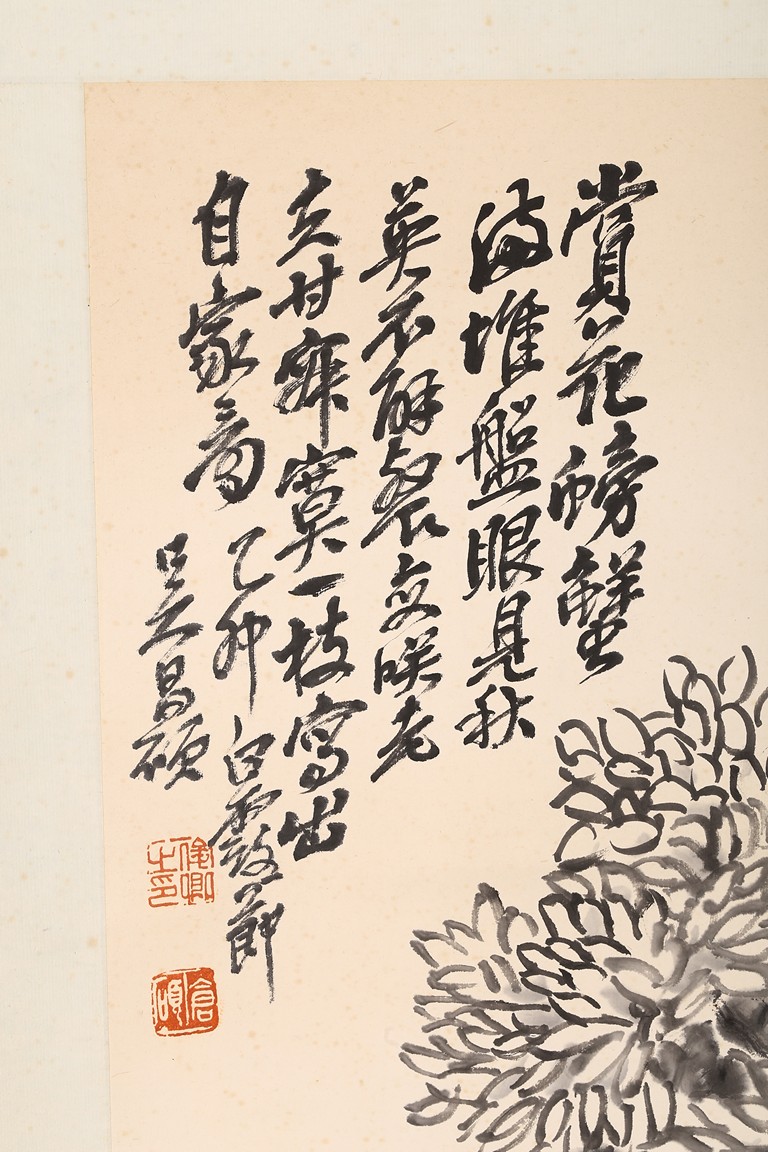 賞花螃蟹
滿堆盤眼見秋
英不解餐咲老
夫甘寂寞一枝寫出
自家看
乙卯白露節
吳昌碩
俊卿之印
倉碩